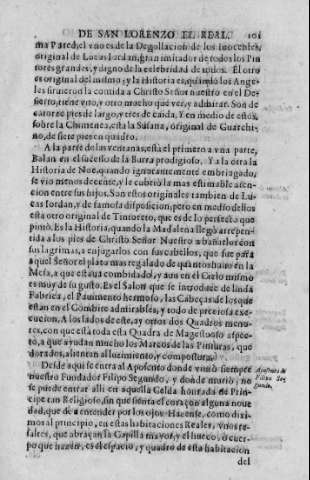 DE SAN LORENZO EL REAL. 101
ma Pared, el vno es de la Degollacion de los Inocentes,
original de Lucas Iordan, gran imitador de todos los Pin
tores grandes, y digno de la celebridad de todos. El otro
es original del mismo, y la Historia es, quando los Ange-
les siruieron la comida a Christo Señor nuestro en el De-
sierto, tiene vno, y otro mucho que ver, y admirar. Son de
catorze pies de largo, y tres de caida. Y en medio de estos
sobre la Chimenea, està la Susana, original de Guarchi-
no, de siete pies en quadro.
A la parte de las ventanas, està el primero a vna parte,
Balan en el sucesso de la Burra prodigioso. Y a la otra la
Historia de Noe, quando ignorantemente embriagado,
se viò menos decente, y le cubriò la mas estimable aten-
cion entre sus hijos. Son estos originales tambien de Lu-
cas Iordan, y de famosa disposicion; pero en medio dellos
està otro original de Tintoreto, que es de lo perfecto que
pintò. Es la Historia, quando la Madalena llegò arrepen-
tida a los pies de Christo Señor Nuestro a bañarlos con
sus lagrimas, a enjugarlos con sus cabellos, que fue para
aquel Señor el plato mas regalado de quantos huuo en la
Mesa, a que estaua combidado, y aun en el Cielo mismo
es muy de su gusto. Es el Salon que se introduce de linda
Fabrica, el Pauimento hermoso, las Cabeças de los que
estàn en el Combite admirables, y todo de preciosa exe-
cucion. A los lados de este, ay otros dos Quadros meno-
res, con que està toda esta Quadra de Magestuoso aspec-
to, a que ayudan mucho los Marcos de las Pinturas, que
dorados, alientan al lucimiento, y compostura.
Desde aqui se entra al Aposento donde viuiò siempre
nuestro Fundador Filipo Segundo, y donde muriò, no
se puede entrar alli en aquella Celda honrada de Prin-
cipe tan Religioso, sin que sienta el coraçon alguna noue
dad, que dè a entender por los ojos. Hazense, como dixi-
mos al principio, en estas habitaciones Reales, vnos re-
saltes, que abraçan la Capilla mayor, y el hueco, ò cuer-
po que hazen, es el espacio, y quadro de esta habitacion
del
Aposento de
Filipo Se-
gundo.